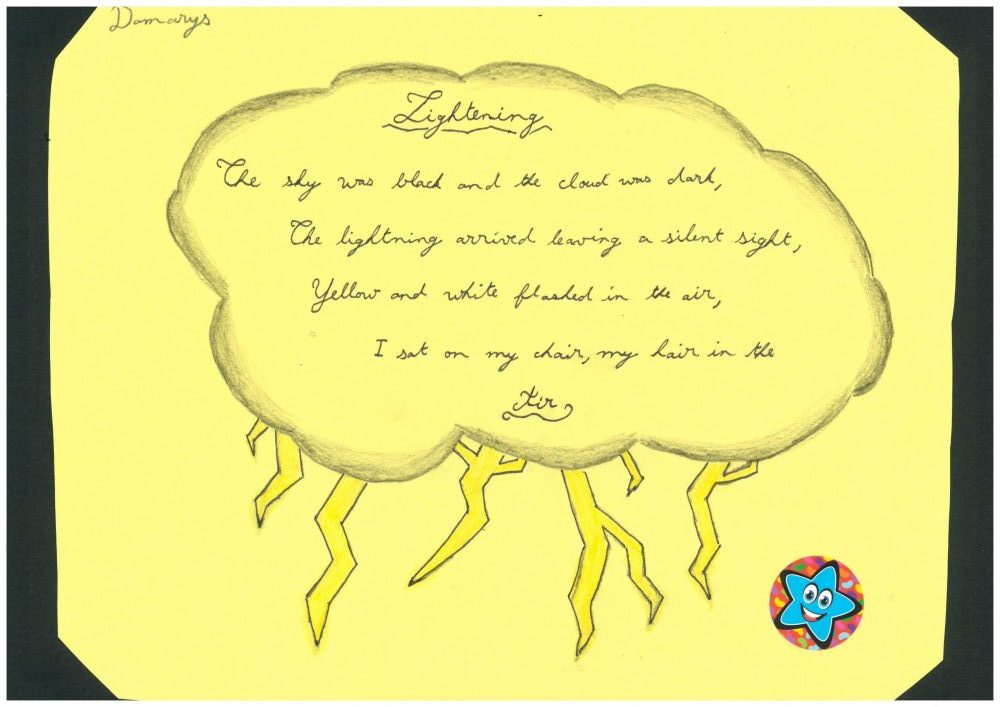 Damarys
Lightening
The sky was black and the cloud was dark,
The lightning arrived leaving a silent sight,
Yellow and white flashed in the air,
I sat on my chair, my hair in the
Air